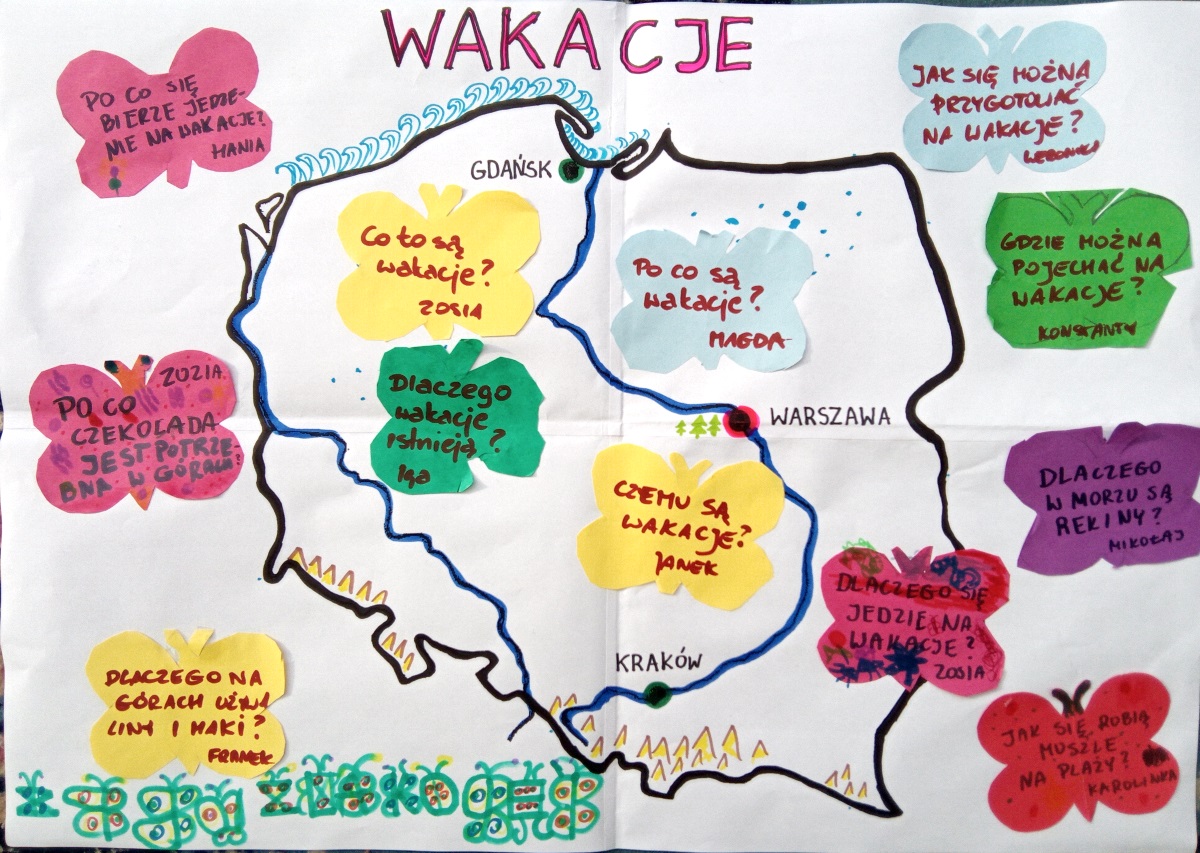 WAKACJE
PO CO SIĘ
BIERZE JEDZE-
NIE NA WAKACJE?
HANIA
JAK SIĘ MOŻNA
PRZYGOTOWAĆ
NA WAKACJE?
WERONIKA
GDAŃSK
Co to są
wakacje?
ZOSIA
Po co są
wakacje?
MAGDA
GDZIE MOŻNA
POJECHAĆ NA
WAKACJE?
KONSTANTY
ZUZIA
PO CO
CZEKOLADA
JEST POTRZE-
BNA W GÓRACH?
Dlaczego
wakacje
istnieją?
Iga
WARSZAWA
CZEMU SĄ
WAKACJE?
JANEK
DLACZEGO
W MORZU SĄ
REKINY?
MIKOŁAJ
DLACZEGO SIĘ
JEDZIE NA
WAKACJE?
ZOSIA
KRAKÓW
DLACZEGO NA
GÓRACH
LINY I HAKI?
FRANEK
JAK SIĘ ROBIĄ
MUSZLE
NA PLAŻY?
KAROLINKA